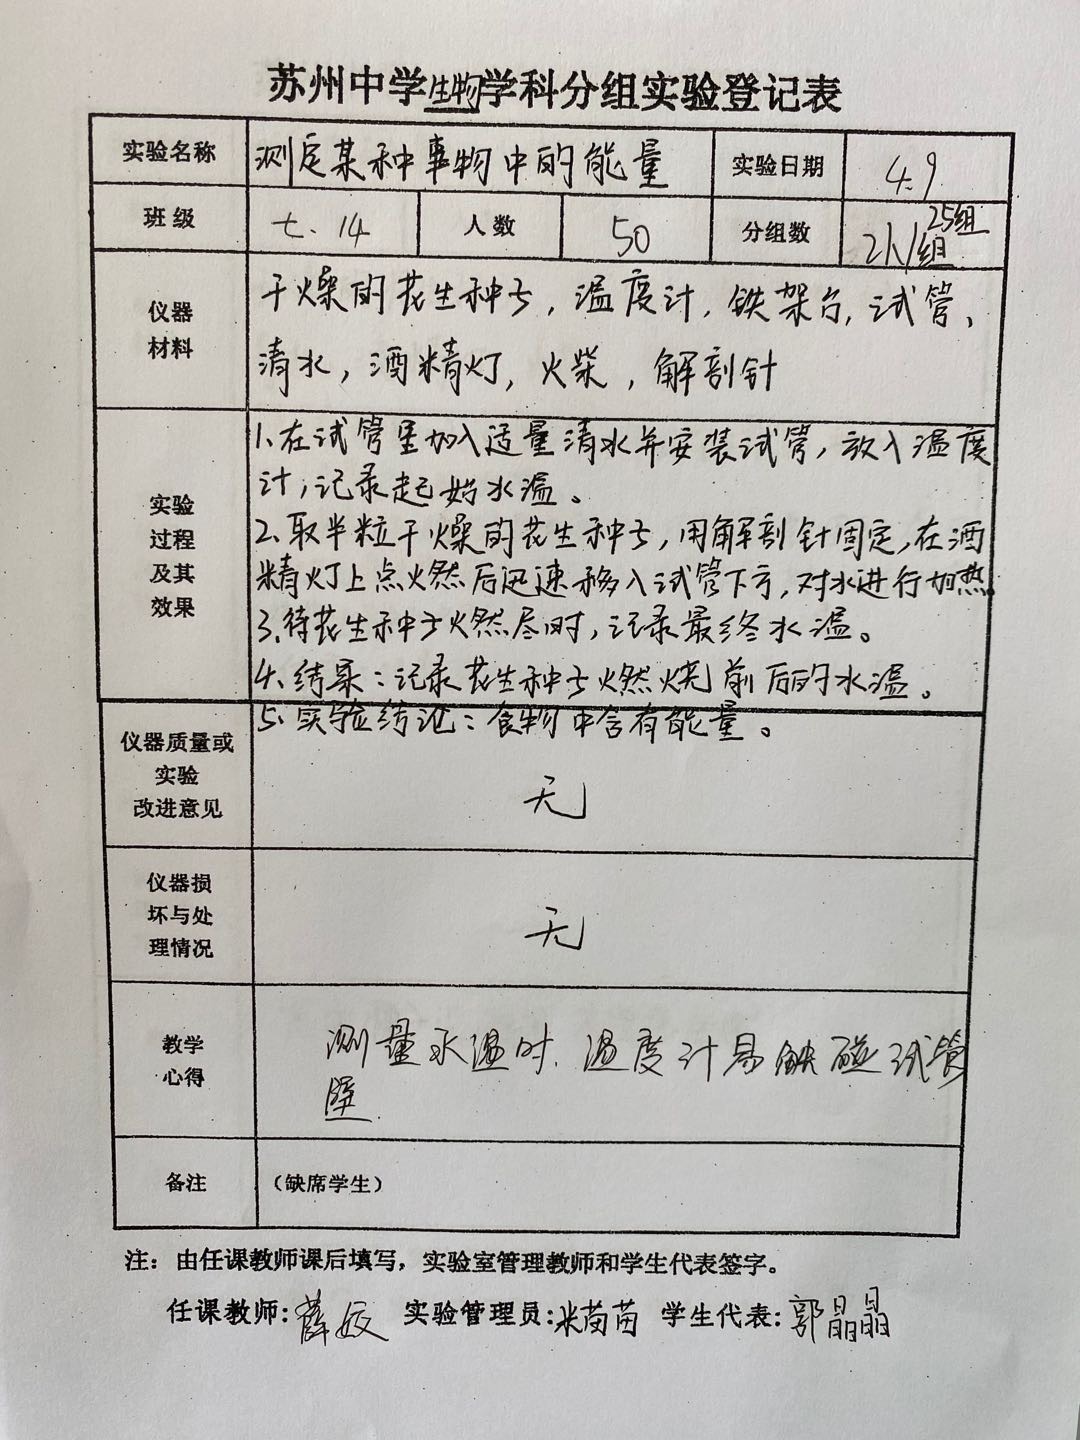 苏州中学生物学科分组实验登记表
实验名称 测定某种事物中的能量 实验日期 4.9
班级 七.14 人数 50 分组数 2人/组 25组
仪器
材料
干燥的花生种子，温度计，铁架台，试管、
清水，酒精灯，火柴，解剖针
实验
过程
及其
效果
1.在试管里加入适量清水并安装试管，放入温度
计，记录起始水温。
2.取半粒干燥的花生种子，用解剖针固定，在酒
精灯上点火然后迅速移入试管下方，对水进行加热。
3.待花生种子火燃尽时，记录最终水温。
4.结果：记录花生种子燃烧前后的水温。
5.实验结论：食物中含有能量。
仪器质量或
实验
改进意见
无
仪器损
坏与处
理情况
无
教学
心得
测量水温时.温度计易触碰试管
壁
备注 （缺席学生）
注：由任课教师课后填写，实验室管理教师和学生代表签字。
任课教师:薛姣 实验管理员:米苗苗 学生代表:郭晶晶